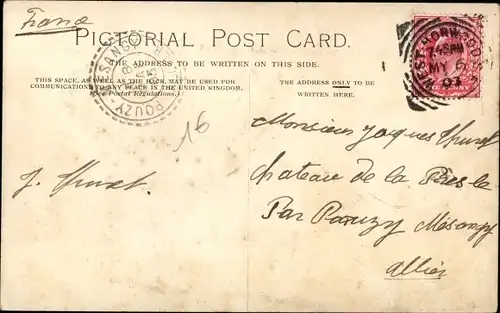 France
PICTORIAL POST CARD.
THE ADDRESS TO BE WRITTEN ON THIS SIDE.
THIS SPACE, AS WELL AS THE BACK, MAY BE USED FOR
COMMUNICATIONS TO ANY PLACE IN THE UNITED KINGDOM.
(Postal Regulations.)
THE ADDRESS ONLY TO BE
WRITTEN HERE.
WEST NORWOOD
MY 6
PENNY
POUZY
16
Monsieur Jaques
Chateau de la
Par Pouzy Mésangy
Allier
J.